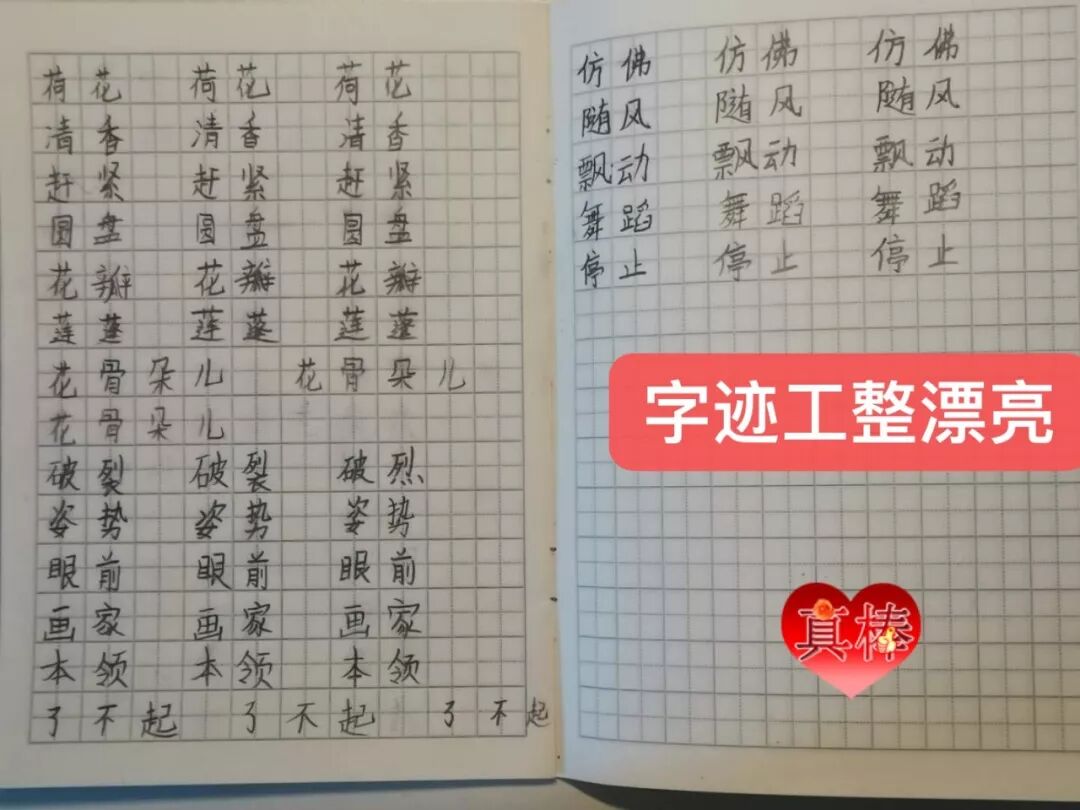 荷花 荷花 荷花
清香 清香 清香
赶紧 赶紧 赶紧
圆盘 圆盘 圆盘
花瓣 花瓣 花瓣
莲蓬 莲蓬 莲蓬
花骨朵儿 花骨朵儿
花骨朵儿
破裂 破裂 破烈
姿势 姿势 姿势
眼前 眼前 眼前
画家 画家 画家
本领 本领 本领
了不起 了不起 了不起
仿佛 仿佛 仿佛
随风 随风 随风
飘动 飘动 飘动
舞蹈 舞蹈 舞蹈
停止 停止 停止
字迹工整漂亮
真棒